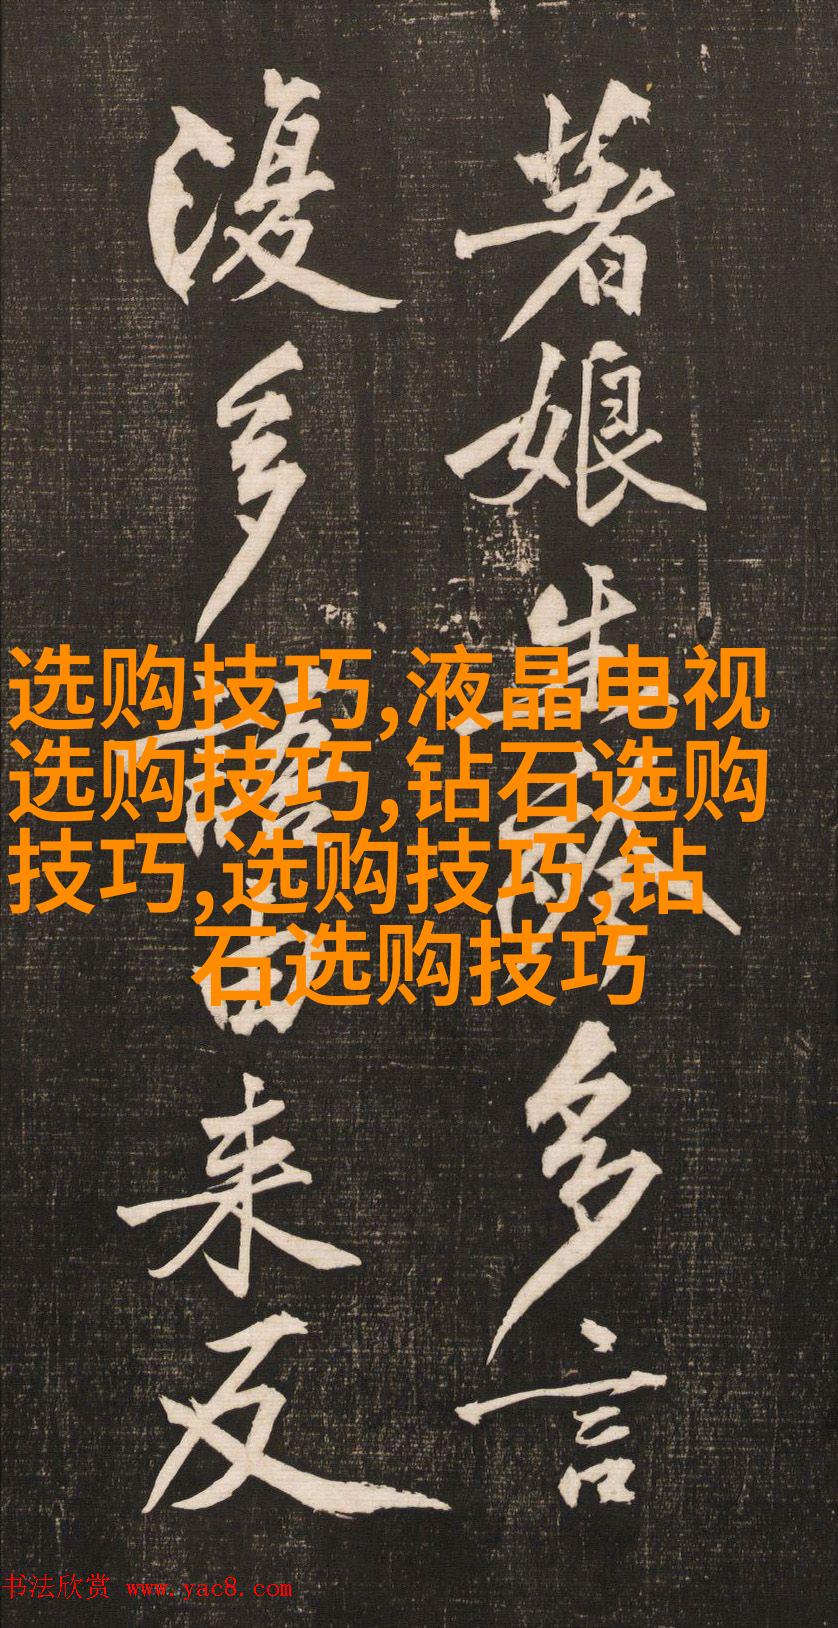 著娘生詅多言
復多語由来反
选购技巧,液晶电视
选购技巧,钻石选购
技巧,选购技巧,钻
石选购技巧
书法欣赏 www.yac8.com